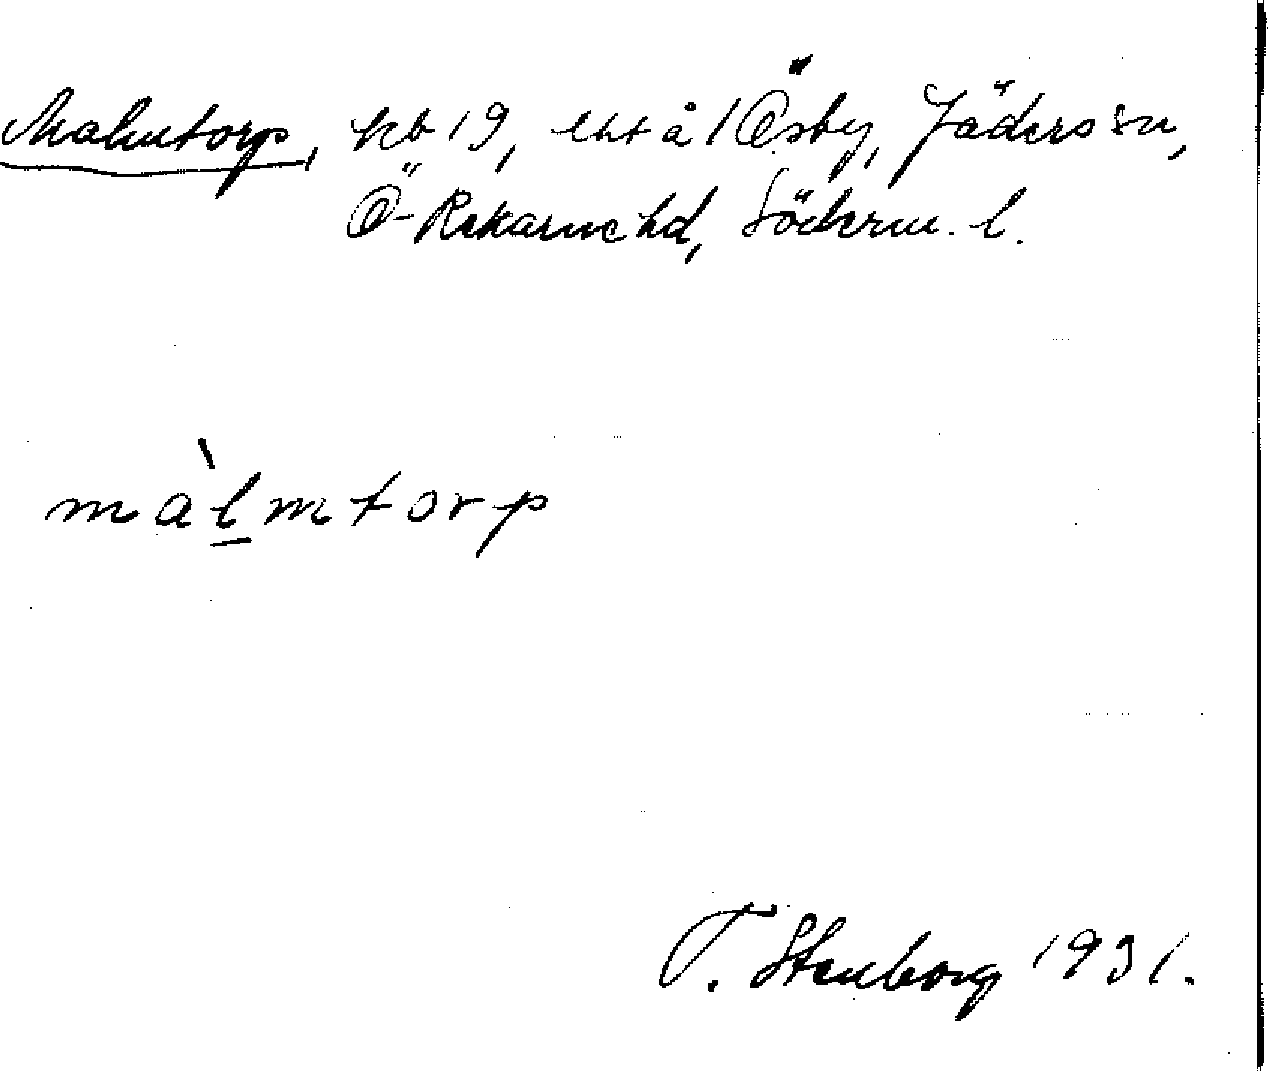 Malmtorp, kb 19, lht å 1 Ösby, Jäders sn,
Ö-Rekarne hd, Söderm. l.
màlmtorp
T. Stenborg 1931.